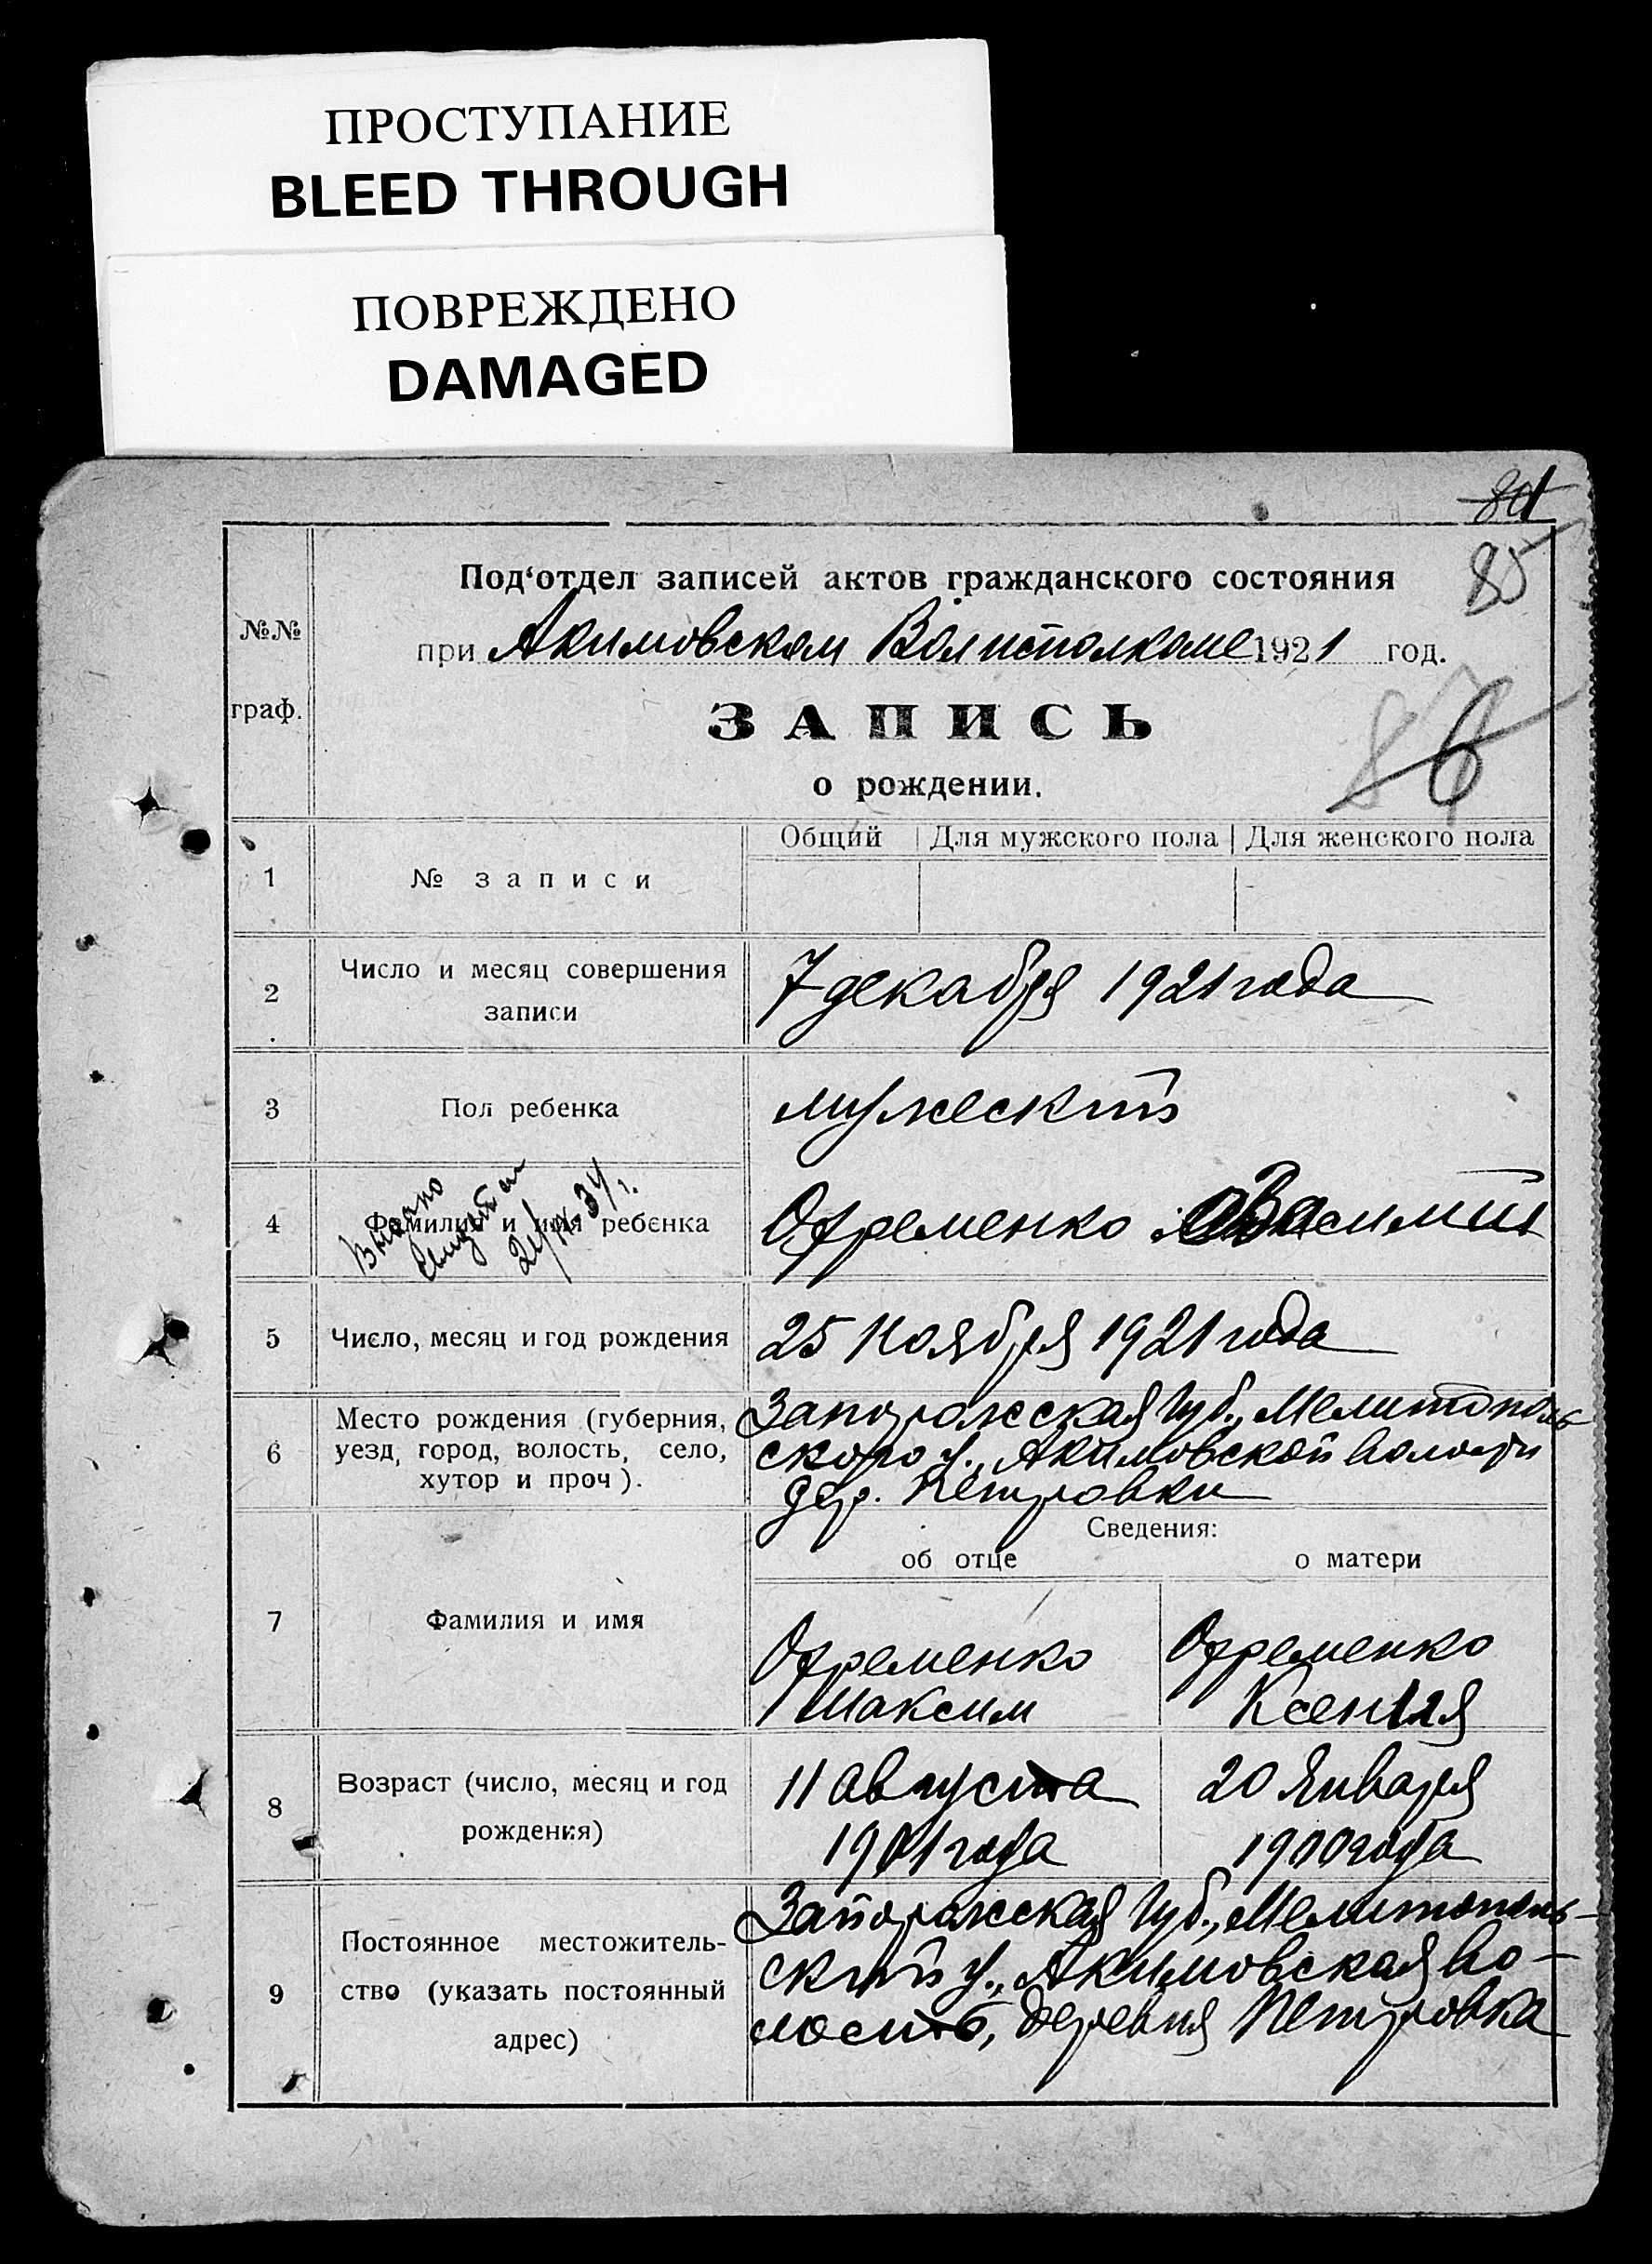 ПРОСТУПАНИЕ
BLEED THROUGH
ПОВРЕЖДЕНО
DAMAGED
85
№№ граф.
Под‘отдел записей актов гражданского состояния
при Акимовском Волисполкоме 1921 год.
ЗАПИСЬ
о рождении.
86
Общий Для мужского пола Для женского пола
1 № записи
2 Число и месяц совершения
записи
7 декабря 1921 года
3 Пол ребенка
мужеский
Выдано
21/IX 34 г.
4 Фамилия и имя ребенка
Офременко
5 Число, месяц и год рождения
25 Ноября 1921 года
6 Место рождения (губерния,
уезд, город, волость, село,
хутор и проч).
Запорожская Губ., Мелитополь
ского у., Акимовской волости
дер. Петровки
Сведения:
об отце о матери
7 Фамилия и имя
Офременко Офременко
Максим Ксения
8 Возраст (число, месяц и год
рождения)
11 августа 20 Января
1901 года 1900 года
9 Постоянное местожитель-
ство (указать постоянный
адрес)
Запорожская Губ., Мелитополь-
ский у., Акимовская во-
лость, деревня Петровка